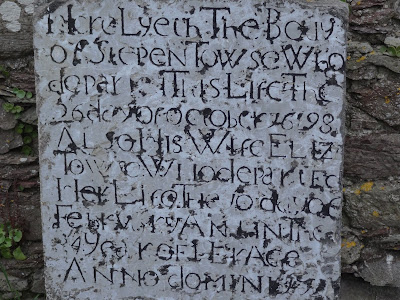 Here Lyeth The Body
of Stepen Towse Who
departe This Life The
26 day of October 1698
Also His Wife Eliz
Towse Who departed
Her Life The 10 daye
Febuary And In The
year of Her Age
Anno domini